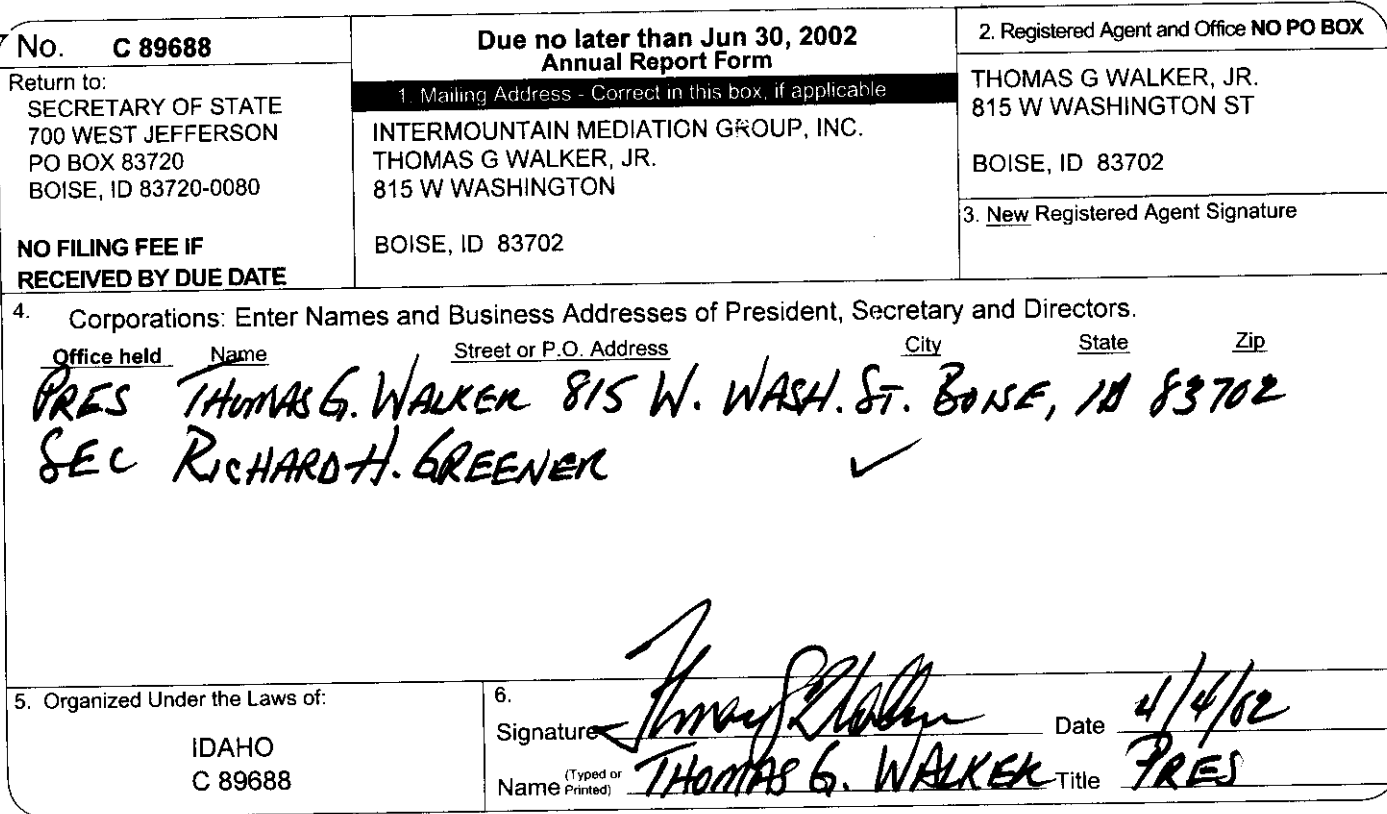 No. C 89688
Return to:
SECRETARY OF STATE
700 WEST JEFFERSON
PO BOX 83720
BOISE, ID 83720-0080
NO FILING FEE IF
RECEIVED BY DUE DATE
Due no later than Jun 30, 2002
Annual Report Form
1. Mailing Address - Correct in this box, if applicable
INTERMOUNTAIN MEDIATION GROUP, INC.
THOMAS G WALKER, JR.
815 W WASHINGTON
BOISE, ID 83702
2. Registered Agent and Office NO PO BOX
THOMAS G WALKER, JR.
815 W WASHINGTON ST
BOISE, ID 83702
3. New Registered Agent Signature
4. Corporations: Enter Names and Business Addresses of President, Secretary and Directors.
Office held Name Street or P.O. Address City State Zip
PRES THOMAS G. WALKER 815 W. WASH. ST. BOISE, ID 83702
SEC RICHARD H. GREENER ✓
5. Organized Under the Laws of:
IDAHO
C 89688
6.
Signature Thomas G Walker Date 4/4/02
Name (Typed or Printed) THOMAS G. WALKER Title PRES